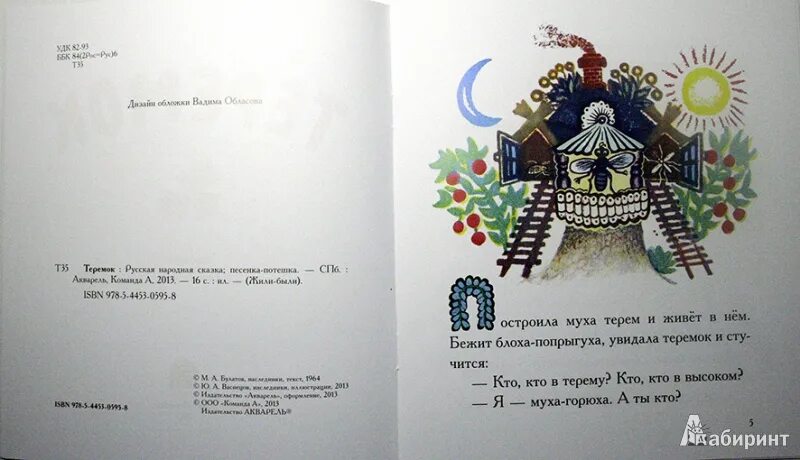 УДК 82-93
ББК 84(2Рос=Рус)6
Т35
Дизайн обложки Вадима Обласова
Т35 Теремок : Русская народная сказка; песенка-потешка. — СПб. :
Акварель, Команда А, 2013. — 16 с. : ил. — (Жили-были).
ISBN 978-5-4453-0595-8
© М. А. Булатов, наследники, текст, 1964
© Ю. А. Васнецов, наследники, иллюстрации, 2013
© Издательство «Акварель», оформление, 2013
© ООО «Команда А», 2013
ISBN 978-5-4453-0595-8 Издательство АКВАРЕЛЬ®
Построила муха терем и живёт в нём.
Бежит блоха-попрыгуха, увидала теремок и сту-
чится:
— Кто, кто в терему? Кто, кто в высоком?
— Я — муха-горюха. А ты кто?
5
Лабиринт